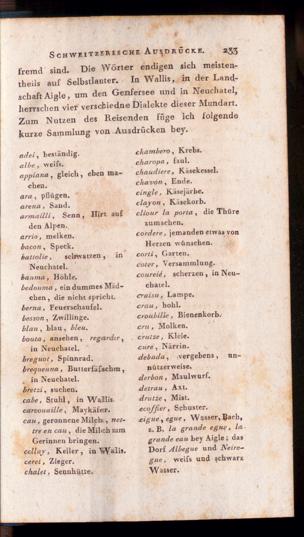 SCHWEITZERISCHE AUSDRÜCKE. 233
fremd sind. Die Wörter endigen sich meisten-
theils auf Selbstlauter. In Wallis, in der Land-
schaft Aigle, um den Genfersee und in Neuchatel,
herrschen vier verschiedne Dialekte dieser Mundart.
Zum Nutzen des Reisenden füge ich folgende
kurze Sammlung von Ausdrücken bey.
adei, beständig.
albe, weiſs.
appiana, gleich, eben ma-
chen.
ara, pflügen.
arena, Sand.
armailli, Senn, Hirt auf
den Alpen.
arrio, melken.
bacon, Speck.
battolie, schwatzen, in
Neuchatel.
bauma, Höhle.
bedouma, ein dummes Mäd-
chen, die nicht spricht.
berna, Feuerschaufel.
besson, Zwillinge.
blau, blau, bleu.
bouta, ansehen, regarder,
in Neuchatel.
breguot, Spinnrad.
brequenna, Butterfäſschm,
in Neuchatel.
bretzi, suchen.
cabe, Stuhl, in Wallis.
carvouaille, Maykäfer.
cau, geronnene Milch, met-
tre en cau, die Milch zum
Gerinnen bringen.
collay, Keller, in Wallis.
ceret, Zieger.
chalet, Sennhütte.
chambero, Krebs.
charopa, faul.
chaudiere, Käsekessel.
chavon, Ende.
cingle, Käsejärbe.
clayon, Käsekorb.
cliour la porta, die Thüre
zumachen.
cordere, jemanden etwas von
Herzen wünschen.
corti, Garten.
coter, Versammlung.
coureié, scherzen, in Neu-
chatel.
craisu, Lampe.
crau, hohl.
croubille, Bienenkorb.
cru, Molken.
crutze, Kleie.
cure, Närrin.
debada, vergebens, un-
nützerweise.
derbon, Maulwurf.
detrau, Axt.
drutze, Mist.
ecoffier, Schuster.
eigue, egue, Wasser, Bach,
z. B. la grande egue, la
grande eau bey Aigle; das
Dorf Albegue und Neire-
gue, weiſs und schwarz
Wasser.